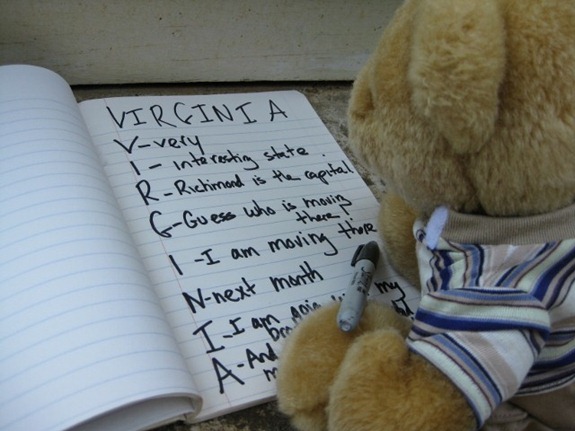 VIRGINIA
V-very
I - interesting state
R-Richmond is the capital
G-Guess who is moving
there
I -I am moving there
N-next month
I-I am my
A-And